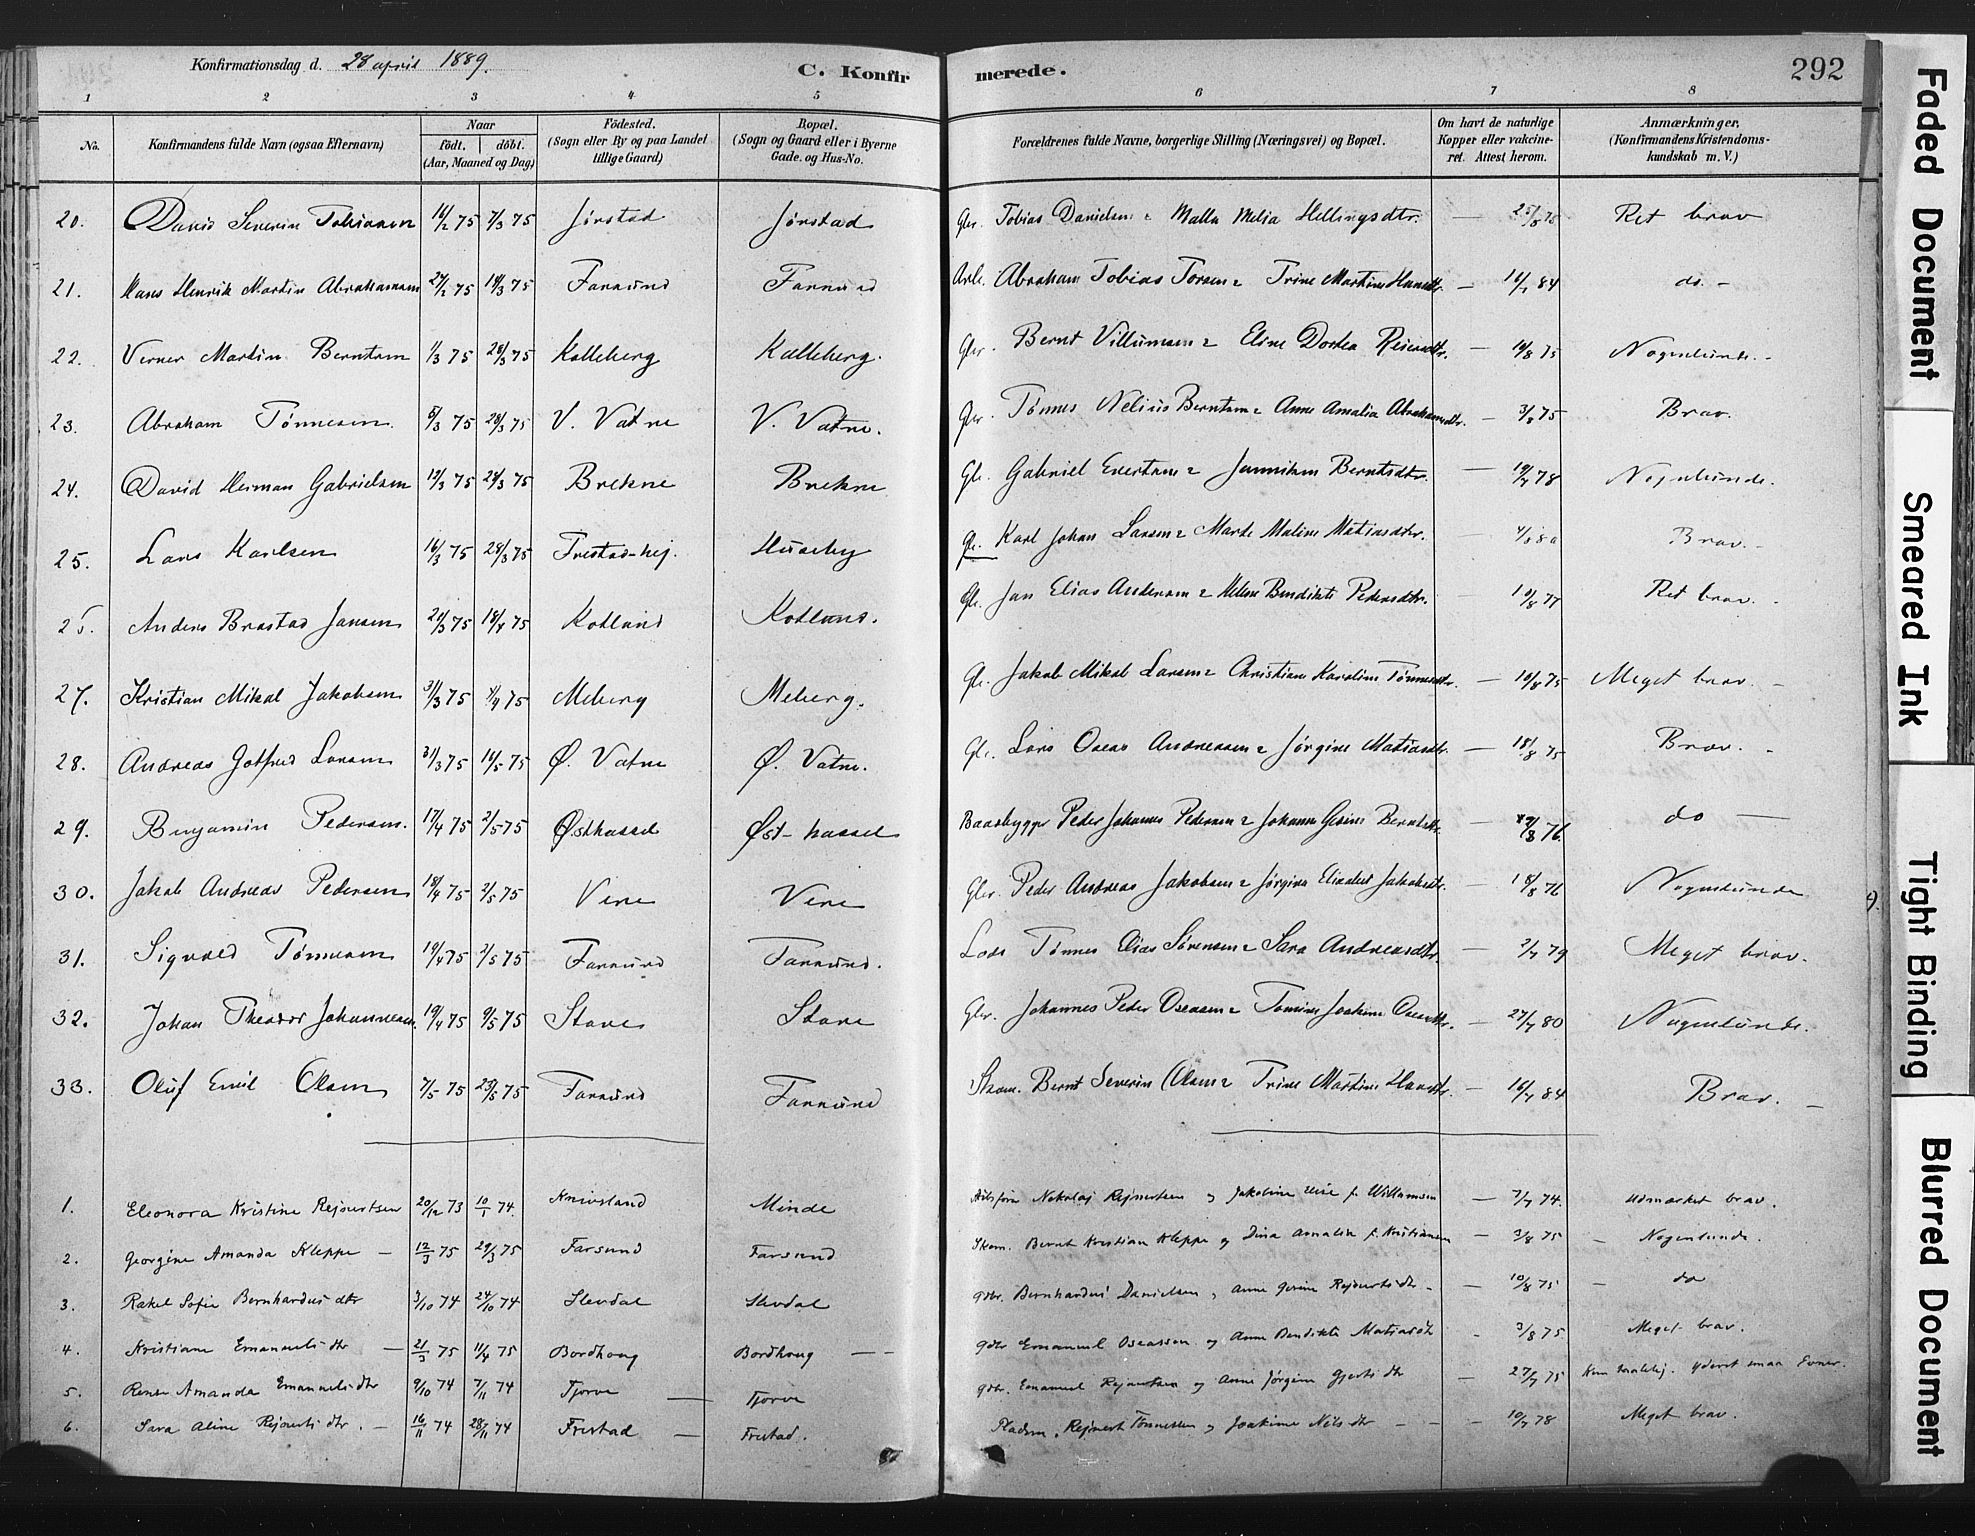 Konfirmationsdag d. 28 april 1889.
C. Konfir merede. 292
1 2 3 4 5 6 7 8
No. Konfirmandens fulde Navn (ogsaa Efternavn) Naar födt. döbt. (Aar, Maaned og Dag) Födested. (Sogn eller By og paa Landet tillige Gaard) Bopæl. (Sogn og Gaard eller i Byerne Gade. og Hus-No. Forældrenes fulde Navne, borgerlige Stilling (Næringsvei) og Bopæl. Om havt de naturlige Kopper eller vakcineret. Attest herom. Anmærkninger, (Konfirmandens Kristendomskundskab m. V.)
20. David Severin Tobiasen 16/2 75 7/3 75 Jørstad Jørstad Gbr. Tobias Danielsen & Malla Melia Hellingsdtr. — 25/8 75 Ret brav
21. Hans Henrik Martin Abrahamsen 24/2 75 14/3 75 Farsund Farsund Arb. Abraham Tobias Torsen & Trine Martine Hansdtr. — 16/7 84 do. -
22. Verner Martin Berntsen 1/3 75 28/3 75 Kalleberg Kalleberg. Gbr. Bernt Villumsen & Eline Dortea Reiersdtr. — 16/8 75 Nogenlunde. -
23. Abraham Tønnesen 5/3 75 28/3 75 V. Vatne V. Vatne. Gbr. Tønnes Nelius Berntsen & Anne Amalia Abrahamsdtr. — 3/8 75 Brav.
24. David Herman Gabrielsen 12/3 75 29/3 75 Brekne Brekne Gb. Gabriel Evertsen & Berntsdtr. — 19/7 78 Nogenlunde.
25. Lars Karlsen 16/3 75 28/3 75 Frestad-hej. Huseby Gb. Karl Johan Larsen & Marte Maline Matiasdtr. — Brav. -
26. Anders Brastad Jansen 21/3 75 18/4 75 Kotland Kotland. Gb. Jan Elias Andersen & Helene Bendikte Pedersdtr. — 10/8 77 Ret brav. -
27. Kristian Mikal Jakobsen 31/3 75 4/4 75 Meberg Meberg. Gb. Jakob Mikal Larsen & Christiane Karoline Tønnesdtr. — 10/8 75 Meget brav. -
28. Andreas Gotfred Larsen 31/3 75 16/5 75 Ø. Vatne Ø. Vatne. Gb. Lars Oseas Andreasen & Jørgine Matiasdtr. — 18/8 75 Brav. -
29. Benjamin Pedersen. 17/4 75 2/5 75 Østhassel Øst-hassel Baadbygger Peder Johannes Pedersen & Johanne Gesine Berntsdtr. — 76. do —
30. Jakob Andreas Pedersen 18/4 75 2/5 75 Vere Vere Gbr. Peder Andreas Jakobsen & Jørgine Elisabet Jakobsdtr. — 18/8 76 Nogenlunde
31. Sigvald Tønnesen 19/4 75 2/5 75 Farsund Farsund. Lods Tønnes Elias Sørensen & Sara Andreasdtr. — 2/7 79 Meget brav.
32. Johan Theodor Johannesen. 19/4 75 9/5 75 Stave Stave Gbr. Johannes Peder Oseasen & Tomine Joakime Oseasdtr. — 27/7 80 Nogenlunde.
33. Oluf Emil Olsen 7/5 75 23/5 75 Farsund Farsund Skom. Bernt Severin Olsen & Trine Martine Hansdtr. — 16/7 84 Brav. —
1. Eleonora Kristine Rejnertsen 20/12 73 10/1 74 Knivsland Minde Nikolaj Rejnertsen og Jakobine Elise f. Willumsen — 7/7 74. udmærket brav.
2. Georgine Amanda Kleppe — 12/3 75 29/3 75 Farsund Farsund Skom. Bernt Kristian Kleppe og Dina Amalia f. Kristiansen — 3/8 75 — Nogenlunde.
3. Rakel Sofie Bernhardus dtr 3/10 74 24/10 74 Slevdal Slevdal gbr. Bernhardus Danielsen og Anne Gesine Rejnerts dtr - — 10/8 75 — do
4. Kristiane Emanuels dtr — 21/3 75 11/4 75 Bordhoug Bordhoug — — gbr Emanuel Oseassen og Anne Bendikte Matiasdtr - 3/8 75 Meget brav.
5. Rense Amanda Emanuelsdtr 9/10 74 7/11 74 Tjorve — Tjorve gbr. Emanuel Rejnertsen og Anne Jørgine Gjerts dtr — 27/7 75 yderst smaa Evner.
6. Sara Aline Rejnerts dtr. — 16/11 74 28/11 74 Frestad — Frestad. Pladsm. Rejnert Tønnessen og Joakime Nils dtr — — 10/7 78 Meget brav.
Faded Document
Smeared Ink
Tight Binding
Blurred Document